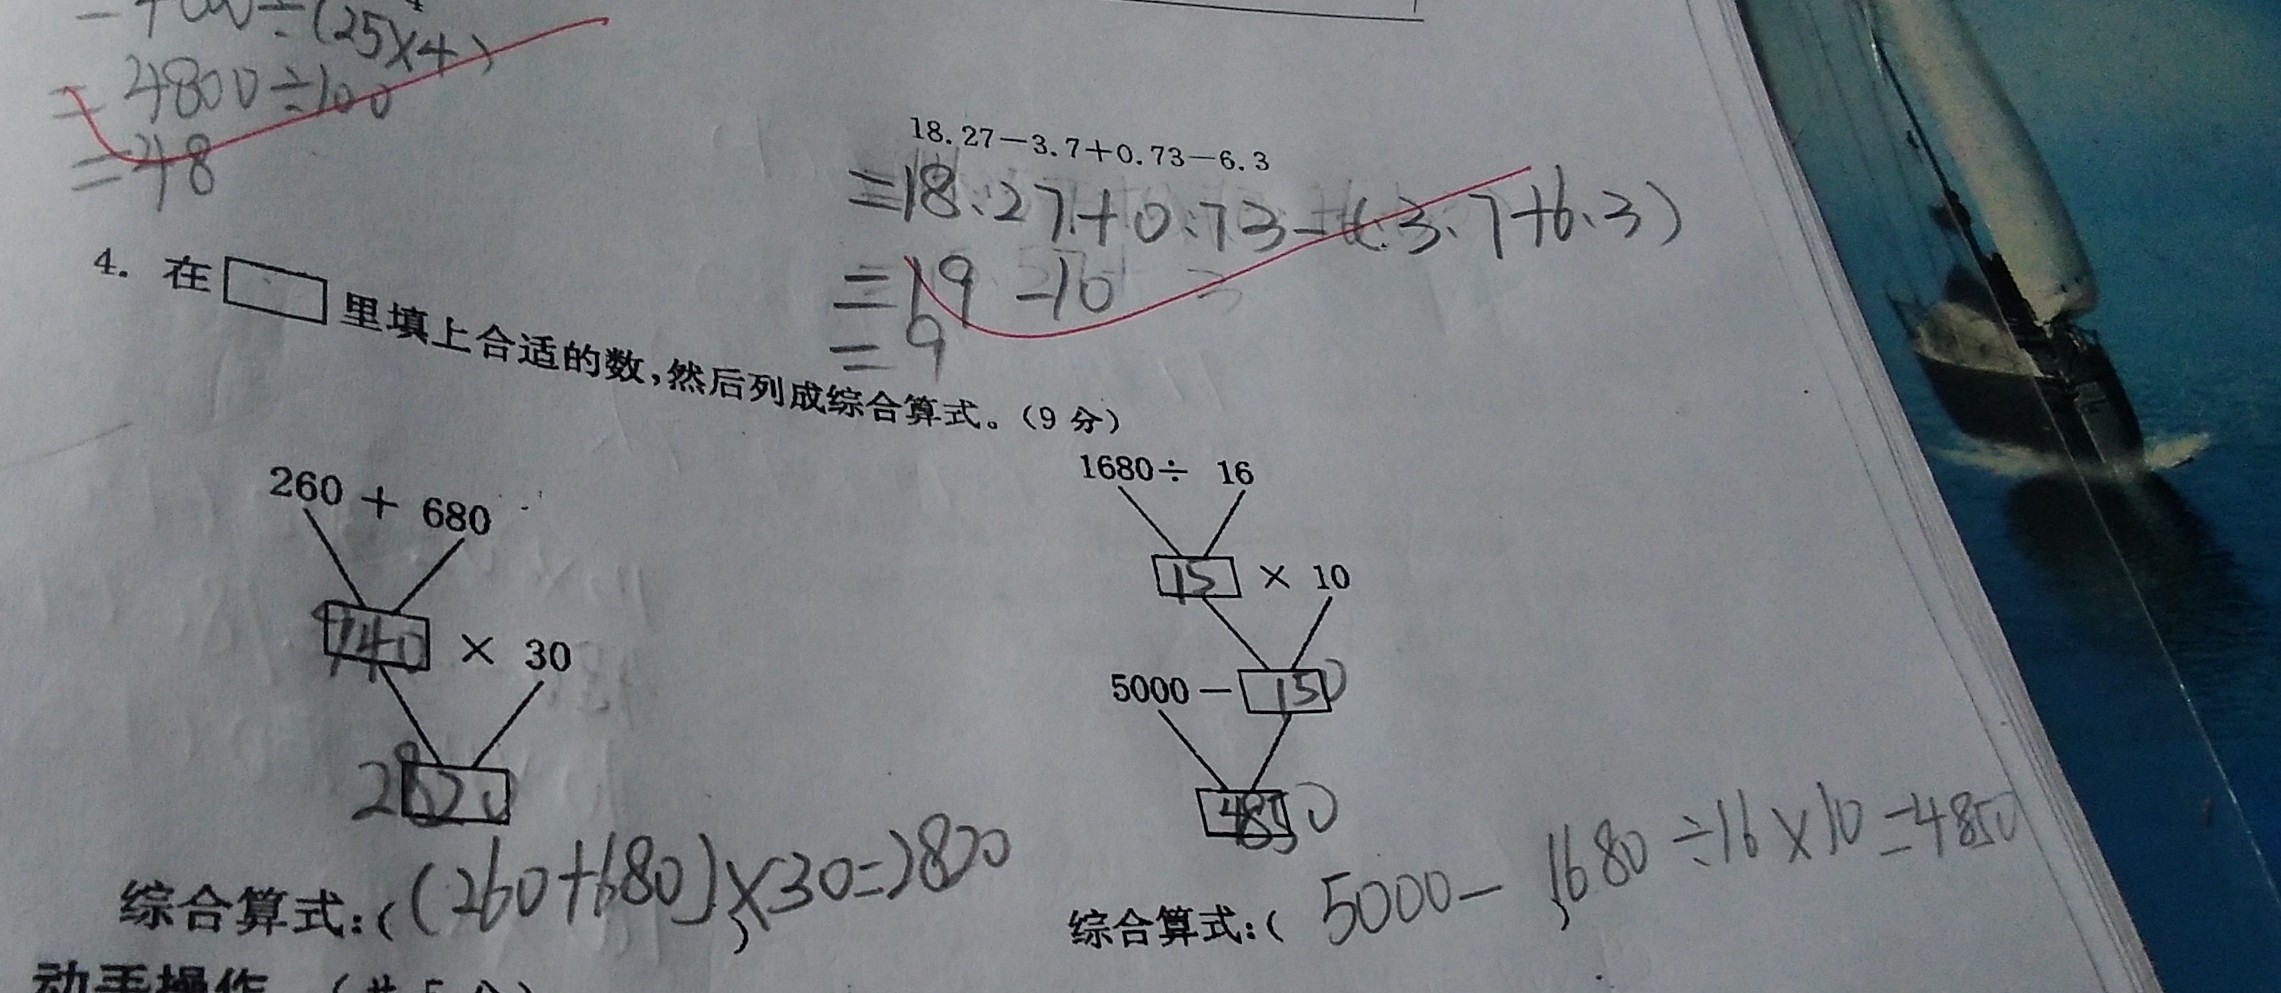 ÷(25×4)
=4800÷100
=48
18.27-3.7+0.73-6.3
=18.27+0.73-(3.7+6.3)
=19-10
=9
4. 在□里填上合适的数,然后列成综合算式。(9 分)
260 + 680
940 × 30
2820
综合算式:((260+680)×30=2820)
1680÷ 16
15 × 10
5000- 150
4850
综合算式:( 5000-1680÷16×10=4850
动手操作